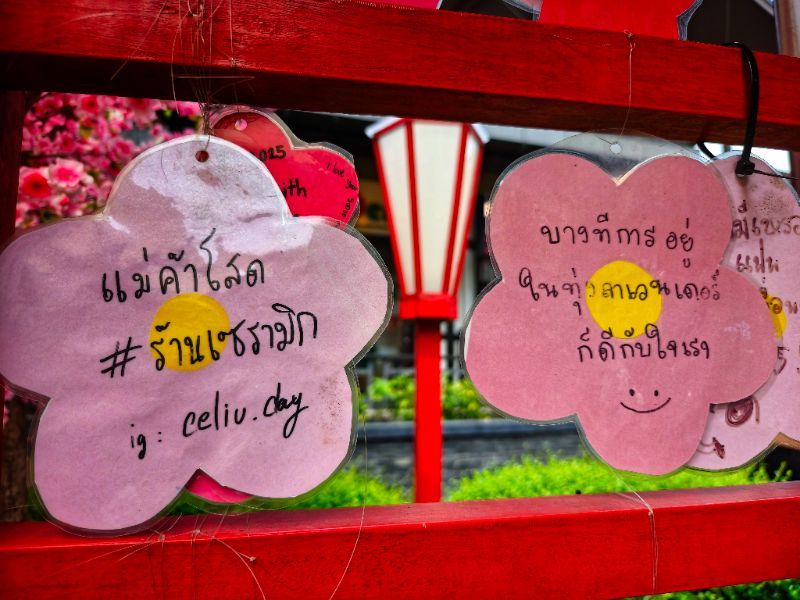 แม่ค้าโสด
#ร้านเซรามิก
ig: celiu.day
025
ith
I love you
บางทีการอยู่
ในทุ่งลาเวนเดอร์
ก็ดีกับใจเรา
แฟน